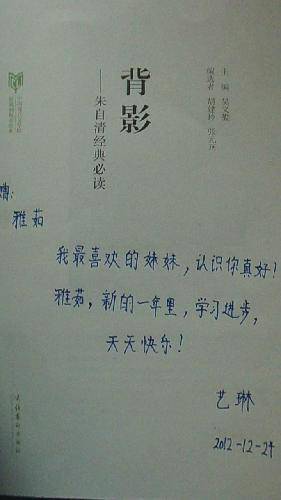 背影
——朱自清经典必读
主 编
编选者
赠：
雅茹
我最喜欢的妹妹，认识你真好！
雅茹，新的一年里，学习进步，
天天快乐！
艺琳
2012-12-24